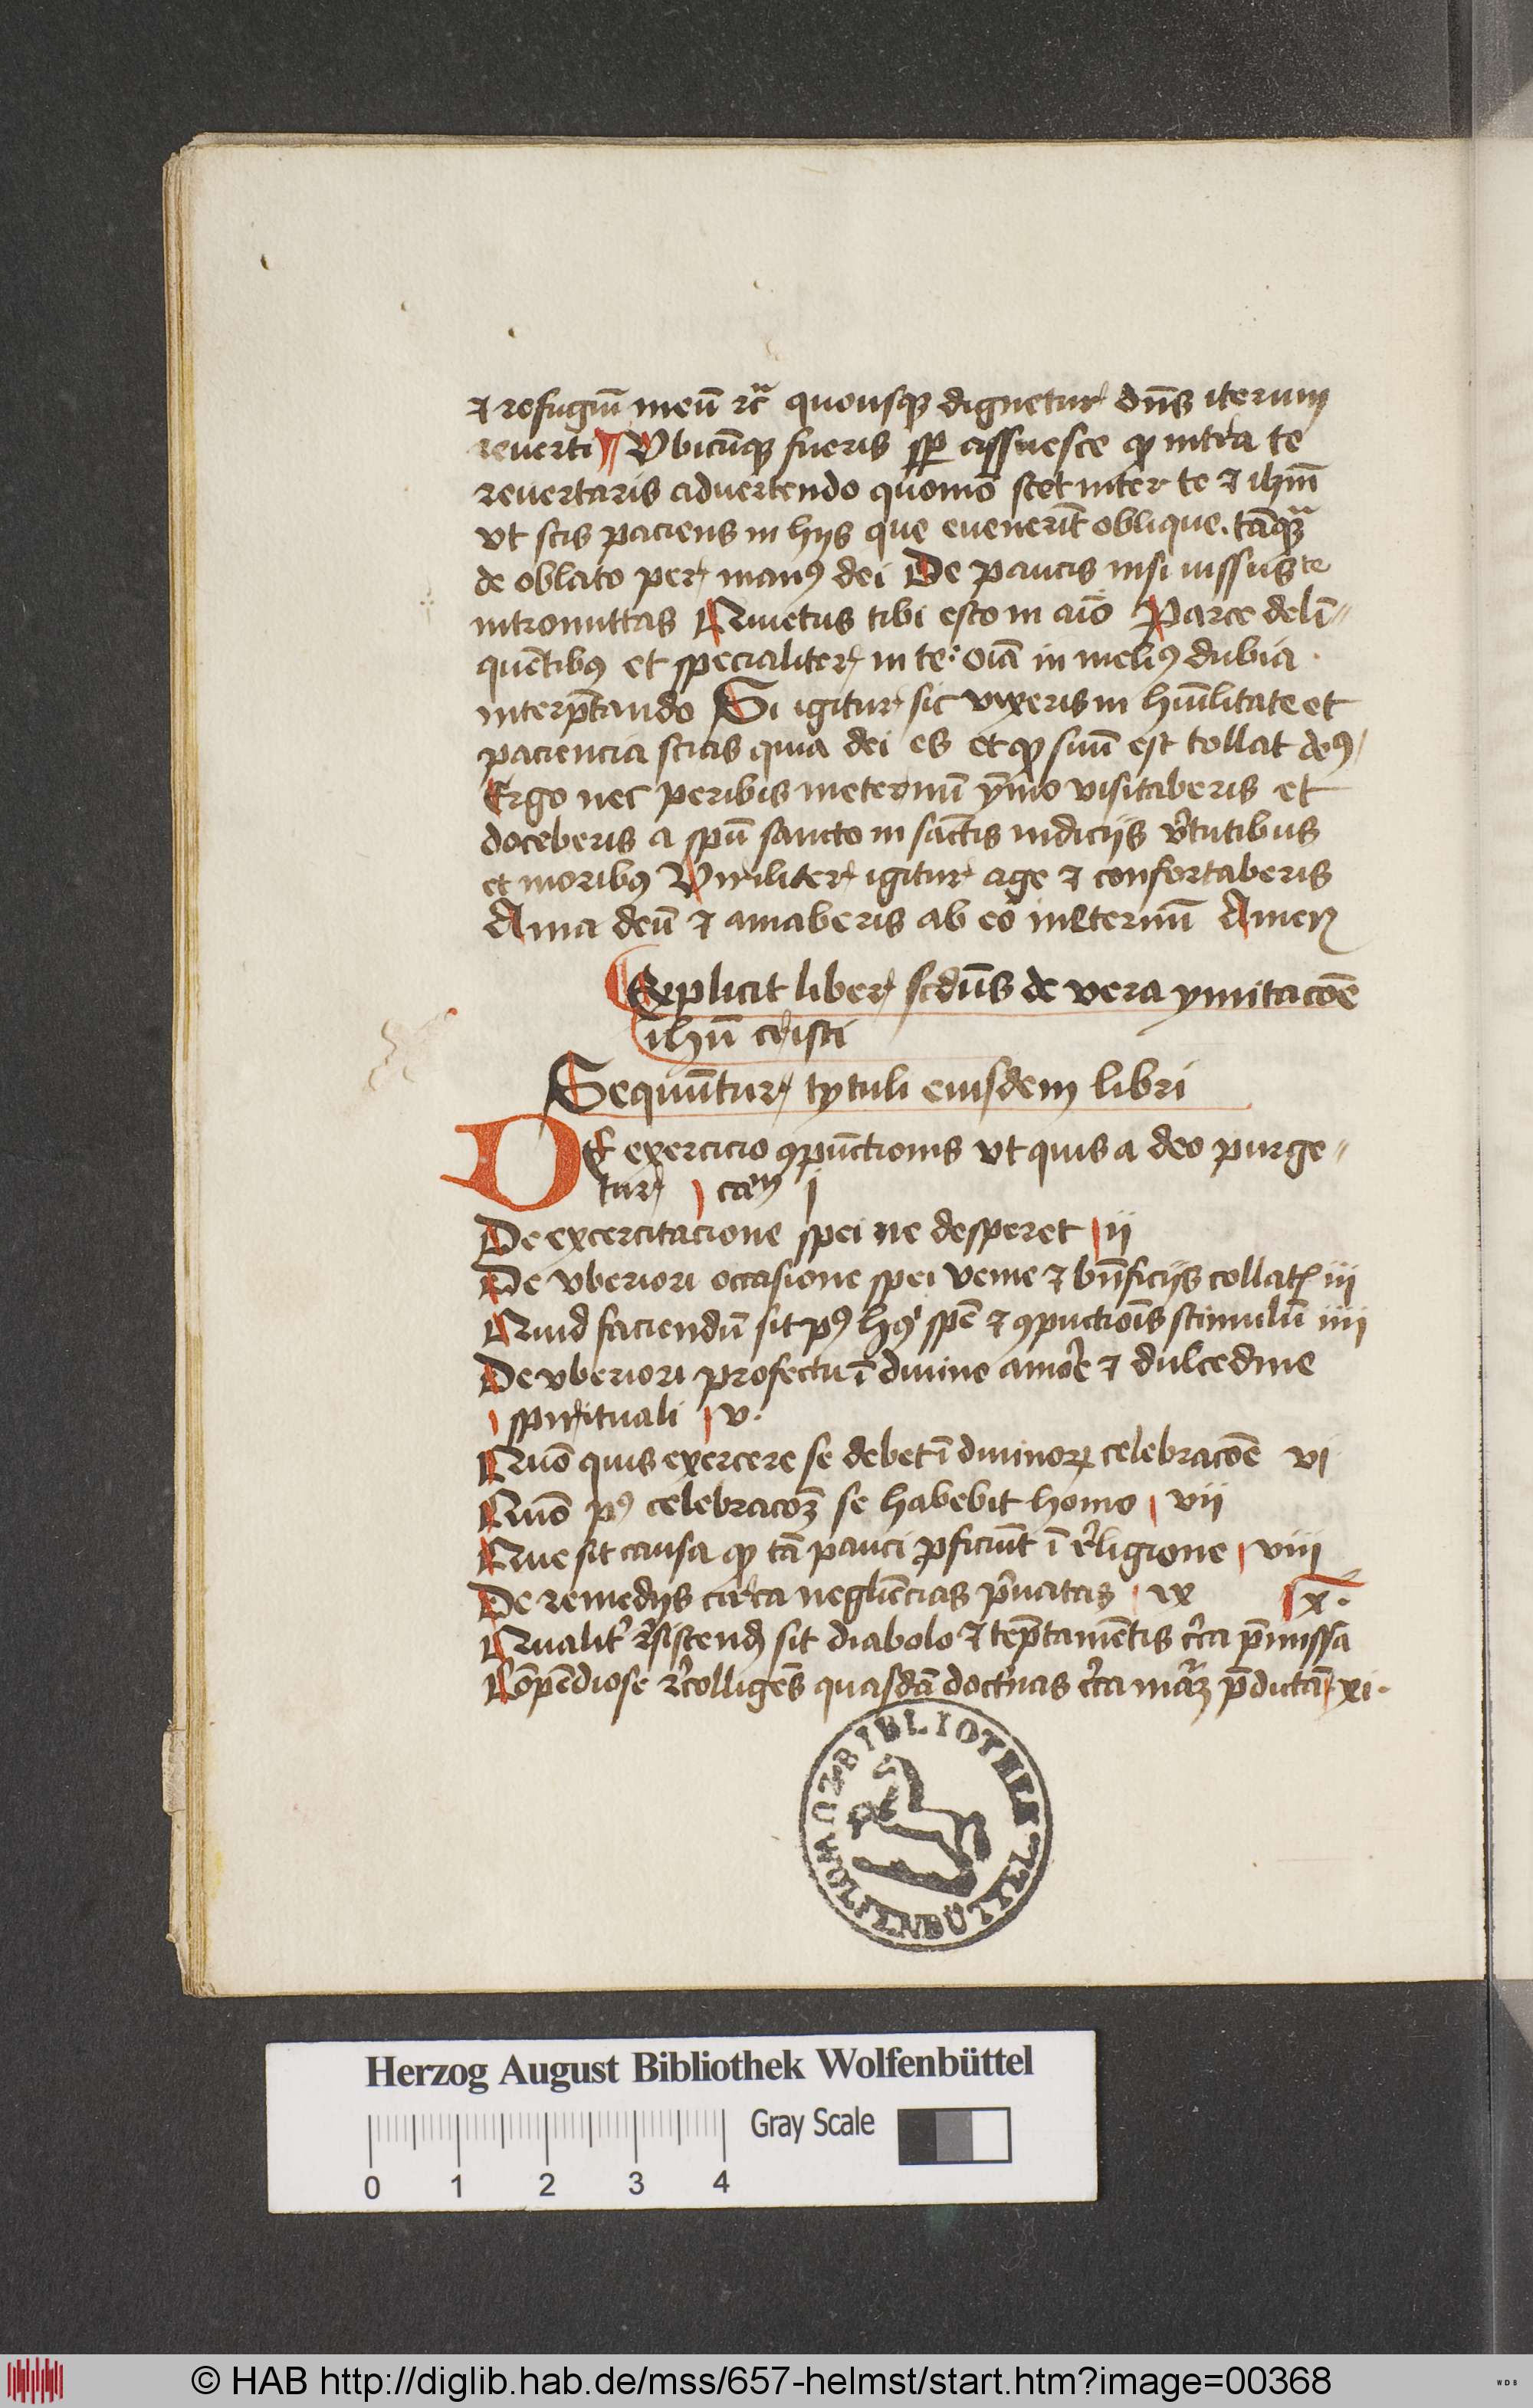 ⁊ refugiū meū ⁊cͣ quousqꝫ dignetur dn̄s iterum
reuerti Vbicūqꝫ fueris sꝑ assuesce ꝙ intra te
reuertaris aduertendo quomō stet inter te ⁊ ihm̄
vt scis paciens in hijs que euenerīt oblique. tāqꝫͣ
de oblato per manꝰ dei De paucis nisi iussus te
intromittas Quietus tibi esto in aīo Parce deli͞〃
quētibꝰ et specialiter in te: oīa in meliꝰ dubia ·
interp̄tando Si igitur sic vixeris in hūilitate et
paciencia scias quia dei es et ꝙ suū est tollat deꝰ
Ergo nec peribis ineternū ȳmo visitaberis et
doceberis a spū sancto in sāctis iudicijs v̾tutibus
et moribꝰ Viriliter igitur age ⁊ confortaberis
Ama deū ⁊ amaberis ab eo ineternū Amen
Explicit liber scdūs de vera ymitacōe
ihū cristi
Sequūtur tytuli eiusdem libri
DE exercicio ꝯpūctionis vt quis a deo purge〃
tur cam i
De excercitacione spei ne desperet ii
De vberiori occasione spei venie ⁊ bn̄ficijs collatꝭ iii
Quid faciendū sit pꝰ spē ⁊ ꝯpuctiōis stimulū iiii
De vberiori profectu ī diuino amore ⁊ dulcedine
spirituali v·
Quō quis exercere se debet ī diuinoꝝ celebracōe vi
Quō pꝰ celebracōꝫ se habebit homo vii
Que sit causa ꝙ tā pauci ꝓficiūt ī r̾ligione viii
De remedijs circa negliēcias p̾uatas ix x·
Qualit̾ r̾sistend sit diabolo ⁊ tēp̄tamētis c̾ca p̄missa
Cōpēdiose r̾colligēs quasdā doct̾nas c̾ca māꝫ p̄dictā xi·
BIBLIOTHEK WOLFENBÜTTEL
Herzog August Bibliothek Wolfenbüttel
Gray Scale
0 1 2 3 4
© HAB http://diglib.hab.de/mss/657-helmst/start.htm?image=00368
WDB